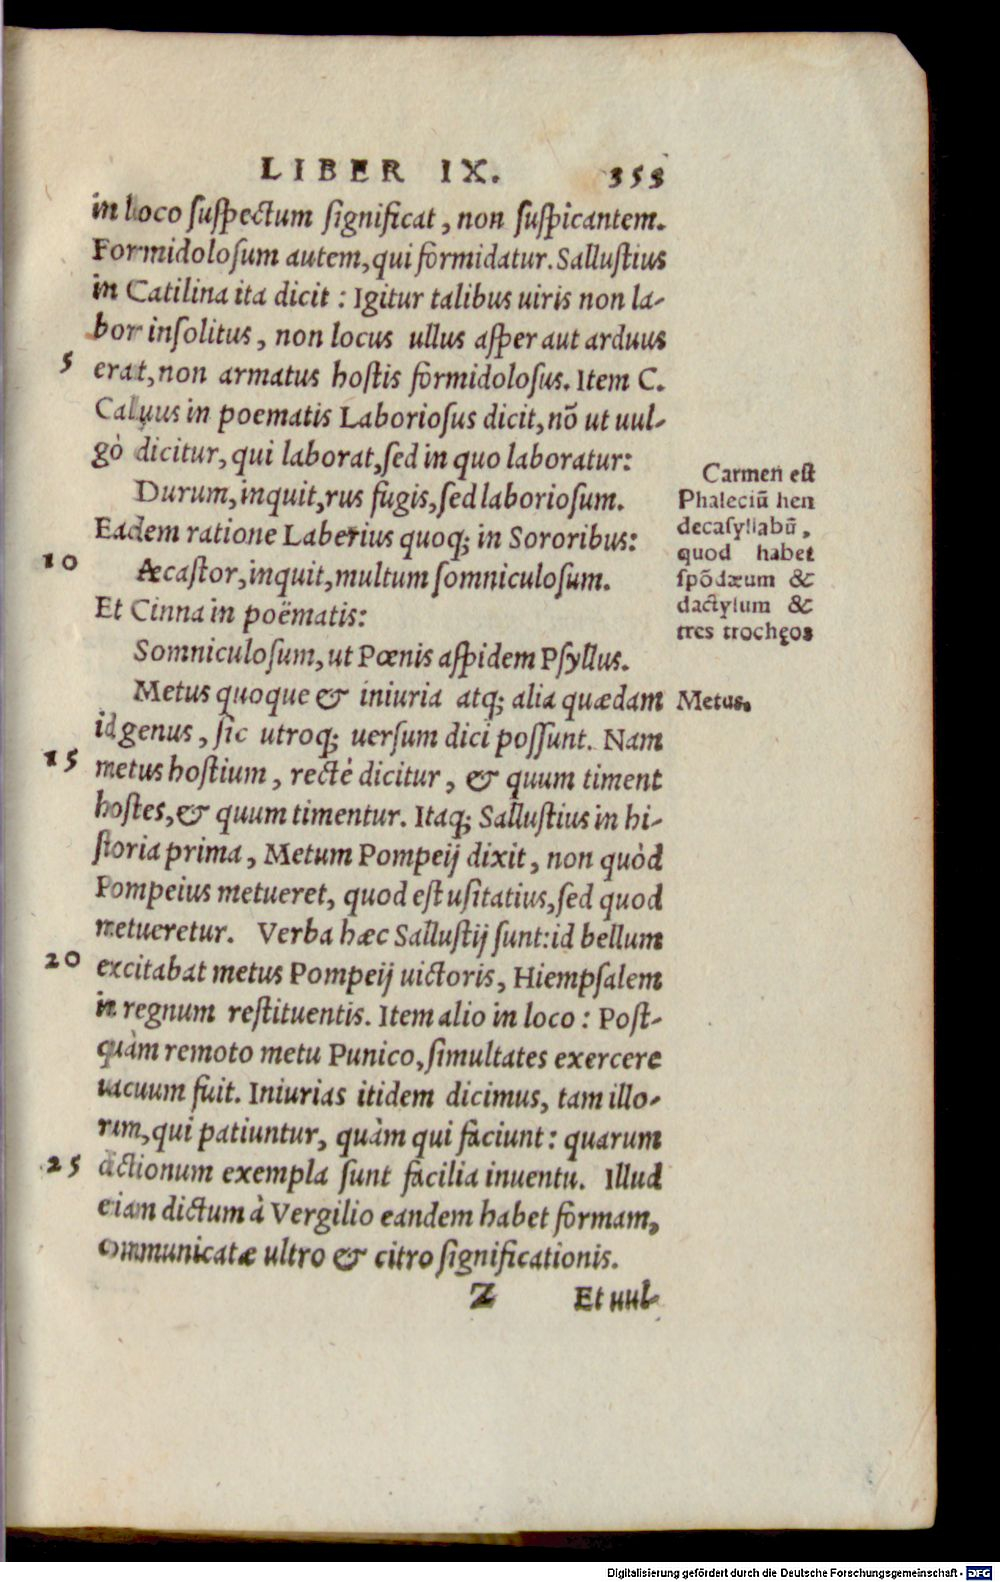 LIBER IX. 353
in loco suſpectum ſignificat, non ſuſpicantem.
Formidoloſum autem, qui formidatur. Salluſtius
in Catilina ita dicit: Igitur talibus uiris non la-
bor inſolitus, non locus ullus aſper aut arduus
5 erat, non armatus hoſtis formidoloſus. Item C.
Caluus in poematis Laborioſus dicit, nō ut uul-
gò dicitur, qui laborat, ſed in quo laboratur:
Durum, inquit, rus fugis, ſed laborioſum.
Eadem ratione Laberius quoq; in Sororibus:
10 Æcaſtor, inquit, multum ſomniculoſum.
Et Cinna in poëmatis:
Somniculoſum, ut Pœnis aſpidem Pſyllus.
Metus quoque & iniuria atq; alia quædam
id genus, ſic utroq; uerſum dici poſſunt. Nam
15 metus hoſtium, rectè dicitur, & quum timent
hoſtes, & quum timentur. Itaq; Salluſtius in hi-
ſtoria prima, Metum Pompeij dixit, non quòd
Pompeius metueret, quod eſt uſitatius, ſed quod
metueretur. Verba hæc Salluſtij ſunt: id bellum
20 excitabat metus Pompeij uictoris, Hiempſalem
in regnum reſtituentis. Item alio in loco: Poſt-
quàm remoto metu Punico, ſimultates exercere
uacuum fuit. Iniurias itidem dicimus, tam illo-
rum, qui patiuntur, quàm qui faciunt: quarum
25 dictionum exempla ſunt facilia inuentu. Illud
etiam dictum à Vergilio eandem habet formam,
communicatæ ultro & citro ſignificationis.
Z Et uul-
Carmen eſt
Phaleciū hen
decaſyllabū,
quod habet
ſpōdæum &
dactylum &
tres trochęos
Metus.
Digitalisierung gefördert durch die Deutsche Forschungsgemeinschaft - DFG